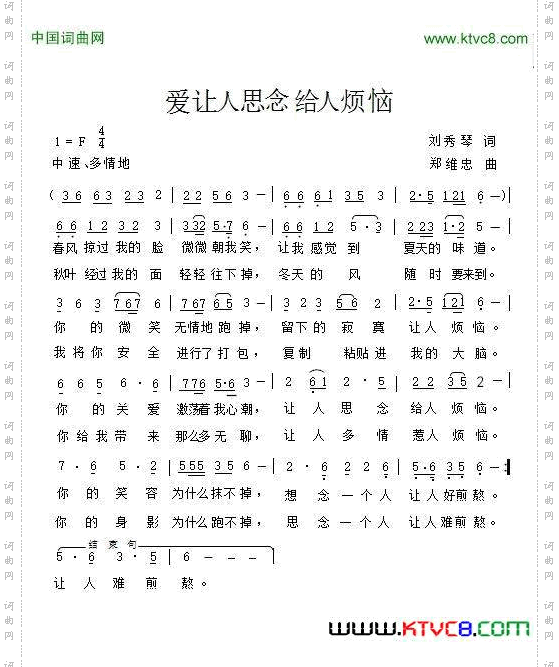 中国词曲网
www.ktvc8.com
爱让人思念给人烦恼
1 = F 4/4
刘秀琴 词
中速、多情地
郑维忠 曲
( 3 6 6 3 2 3 2 | 2 2 5 6 3 － | 6 6 6 1 3 5 3 | 2 · 5 1 2 1 6 － )
6 6 1 2 3 2 3 | 3 3 2 5 · 7 6 － | 6 6 1 2 5 · 3 | 2 2 3 1 · 2 2 － |
春风掠过我的脸 微微朝我笑， 让我感觉到 夏天的味道。
秋叶经过我的面 轻轻往下掉， 冬天的风 随时要来到。
3 6 3 7 6 7 6 | 7 6 7 6 5 3 － | 3 2 2 3 5 6 2 | 2 · 5 1 2 1 6 － |
你的微笑 无情地跑掉， 留下的寂寞 让人烦恼。
我将你安全 进行了打包， 复制粘贴进 我的大脑。
6 6 5 6 · 6 | 7 7 6 5 · 3 － | 2 6 1 2 5 · 5 | 2 2 3 5 2 － |
你的关爱 激荡着我心潮， 让人思念 给人烦恼。
你给我带来 那么多无聊， 让人多情 惹人烦恼。
7 · 6 5 · 2 | 5 5 5 3 5 5 － | 2 · 6 2 2 6 | 5 · 6 3 5 6 － :|
你的笑容 为什么抹不掉， 想念一个人 让人好煎熬。
你的身影 为什么跑不掉， 思念一个人 让人难煎熬。
结束句
5 · 6 3 · 5 | 6 － － － |
让人难煎熬。
www.KTVC8.com
词曲网